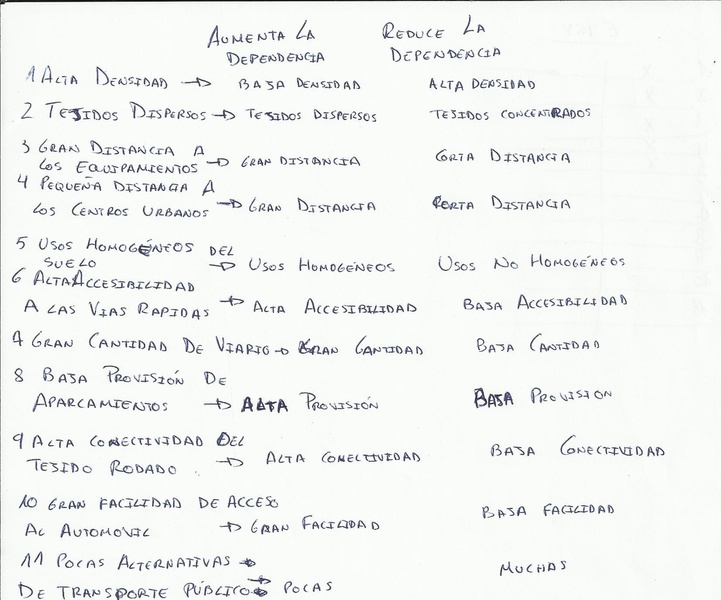 AUMENTA LA REDUCE LA
DEPENDENCIA DEPENDENCIA
1 ALTA DENSIDAD → BAJA DENSIDAD ALTA DENSIDAD
2 TEJIDOS DISPERSOS → TEJIDOS DISPERSOS TEJIDOS CONCENTRADOS
3 GRAN DISTANCIA A
LOS EQUIPAMIENTOS → GRAN DISTANCIA CORTA DISTANCIA
4 PEQUEÑA DISTANCIA A
LOS CENTROS URBANOS → GRAN DISTANCIA CORTA DISTANCIA
5 USOS HOMOGÉNEOS DEL
SUELO → USOS HOMOGÉNEOS USOS NO HOMOGÉNEOS
6 ALTA ACCESIBILIDAD
A LAS VIAS RAPIDAS → ALTA ACCESIBILIDAD BAJA ACCESIBILIDAD
7 GRAN CANTIDAD DE VIARIO → GRAN CANTIDAD BAJA CANTIDAD
8 BAJA PROVISIÓN DE
APARCAMIENTOS → ALTA PROVISIÓN BAJA PROVISION
9 ALTA CONECTIVIDAD DEL
TEJIDO RODADO → ALTA CONECTIVIDAD BAJA CONECTIVIDAD
10 GRAN FACILIDAD DE ACCESO
AL AUTOMOVIL → GRAN FACILIDAD BAJA FACILIDAD
11 POCAS ALTERNATIVAS
DE TRANSPORTE PÚBLICO → POCAS MUCHAS